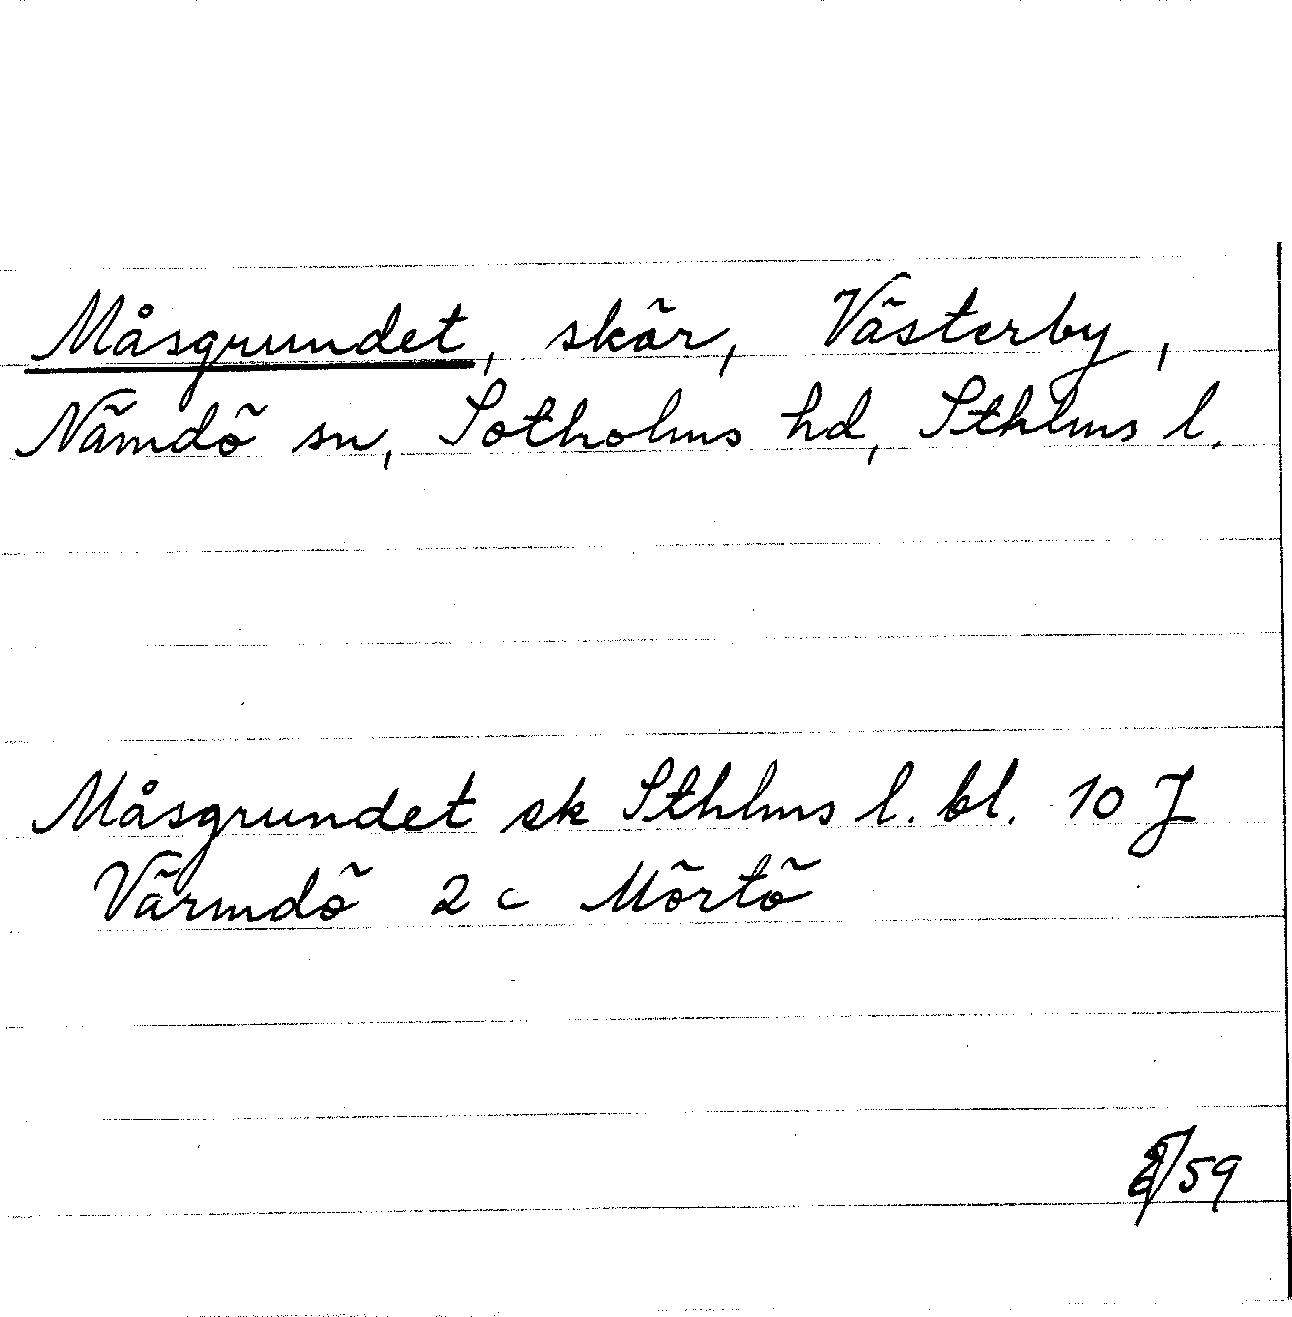 Måsgrundet, skär, Västerby,
Nämdö sn, Sotholms hd, Sthlms l.
Måsgrundet sk Sthlms l. bl. 10 J
Värmdö 2c Mörtö
/59